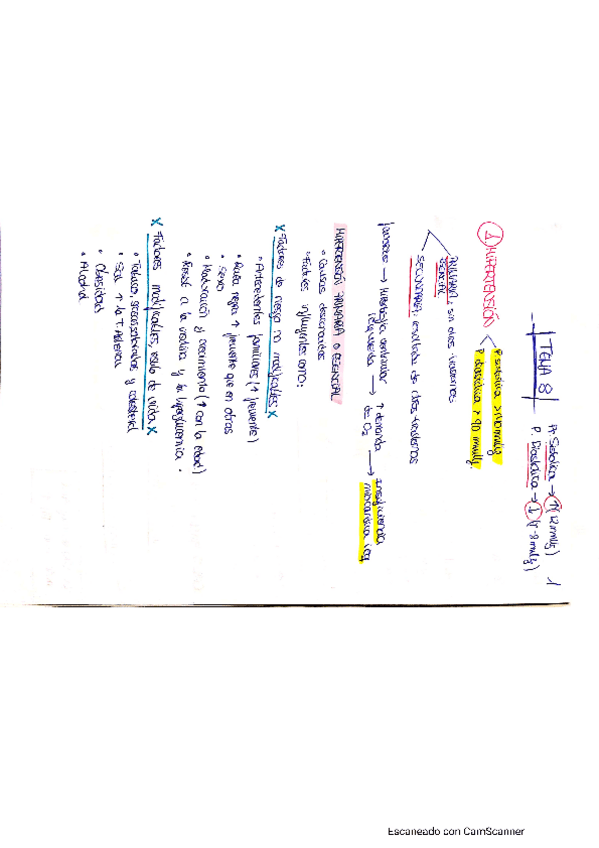 TEMA 8
Pr. Sistólica → ↑ (12 mmHg)
P. Diastólica → ↓ (7-8 mmHg)
1
① HIPERTENSIÓN
P. sistólica > 140 mmHg
P. diastólica > 90 mmHg.
PRIMARIA: sin otros trastornos
ESENCIAL
SECUNDARIA: resultado de otros trastornos
→ hipertrofia ventricular izquierda → ↑ demanda de O₂ → insuficiencia miocardica
HIPERTENSIÓN PRIMARIA O ESENCIAL
• Causas desconocidas
• Factores influyentes como:
X Factores de riesgo no modificables X
• Antecedentes familiares (↑ frecuente)
• Raza negra ↑ frecuente que en otras
• Sexo
• Maduración y crecimiento (↑ con la edad)
• Resist a la insulina y la hiperglucemia.
X Factores modificables, estilo de vida X
• Tabaco, y colesterol
• Sal ↑ la T. Arterial
• Obesidad
• Alcohol
Escaneado con CamScanner